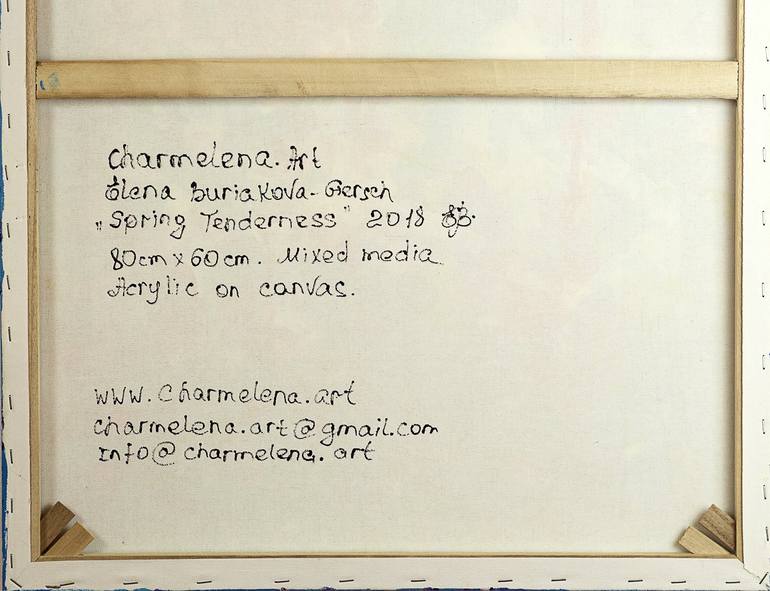 Charmelena. Art
Elena Buriakova-Gersch
„Spring Tenderness" 2018
80cm x 60cm. Mixed media
Acrylic on canvas.
www. Charmelena. art
charmelena.art@gmail.com
Info@ charmelena. art